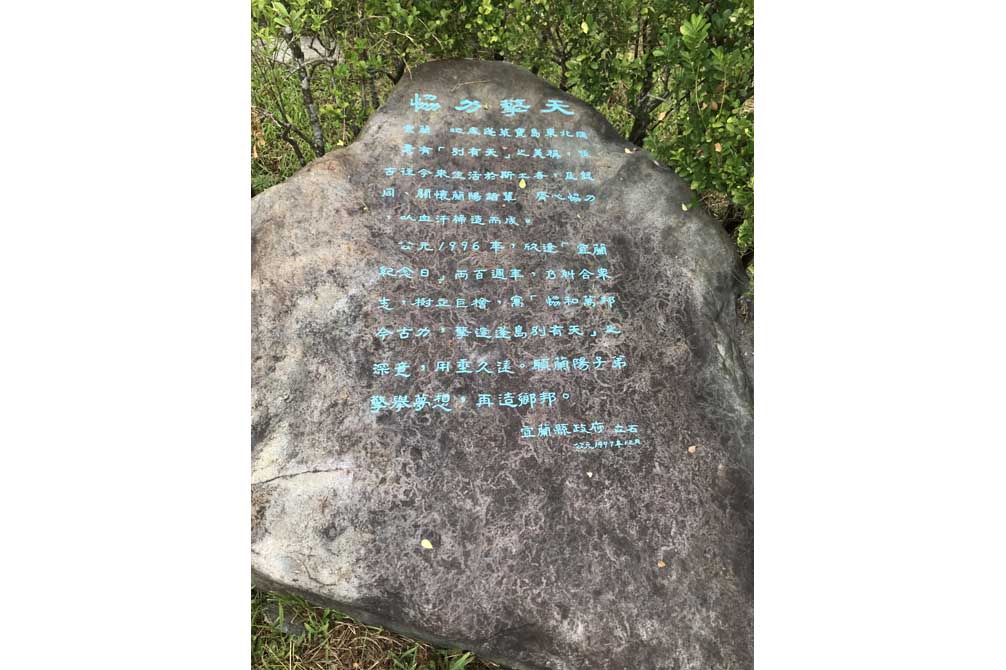 協力擎天
宜蘭 地處蓬萊寶島東北隅
素有「別有天」之美稱。
古往今來生活於斯土者,
同、關懷蘭陽 齊心協力
,以血汗締造而成。
公元1996年,欣逢「宜蘭
紀念日」兩百週年,乃糾合眾
志,樹立巨檜,寓「協和萬邦
今古力,擎造蓬島別有天」之
深意,用垂久遠。願蘭陽子弟
擎舉夢想,再造鄉邦。
宜蘭縣政府 立石
公元1997年12月